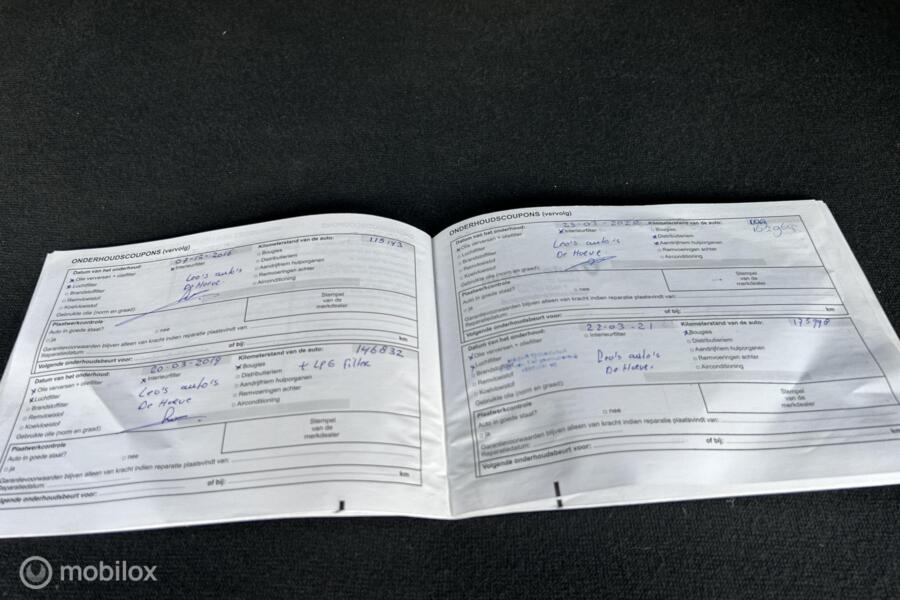 ONDERHOUDSCOUPONS (vervolg)
Datum van het onderhoud: Kilometerstand van de auto: 115143
Olie verversen + oliefilter Interieurfilter Bougies
Luchtfilter Distributieriem
Brandstoffilter Leo's auto's Aandrijfriem hulporganen
Remvloeistof De Hoeve Remvoeringen achter
Koelvloeistof Airconditioning
Gebruikte olie (norm en graad):
Plaatwerkcontrole Stempel
Auto in goede staat? van de
ja nee merkdealer
Garantievoorwaarden blijven alleen van kracht indien reparatie plaatsvindt van:
Reparatiedatum:
Volgende onderhoudsbeurt voor: of bij: km
Datum van het onderhoud: 20-03-2019 Kilometerstand van de auto: 146832
Olie verversen + oliefilter Interieurfilter Bougies + LPG Filter
Luchtfilter Leo's auto's Distributieriem
Brandstoffilter De Hoeve Aandrijfriem hulporganen
Remvloeistof Remvoeringen achter
Koelvloeistof Airconditioning
Gebruikte olie (norm en graad):
Plaatwerkcontrole Stempel
Auto in goede staat? van de
ja nee merkdealer
Garantievoorwaarden blijven alleen van kracht indien reparatie plaatsvindt van:
Reparatiedatum:
Volgende onderhoudsbeurt voor: of bij: km
ONDERHOUDSCOUPONS (vervolg)
Datum van het onderhoud: 25-03-2020 Kilometerstand van de auto:
Olie verversen + oliefilter Interieurfilter Bougies
Luchtfilter Leo's auto's Distributieriem
Brandstoffilter De Hoeve Aandrijfriem hulporganen
Remvloeistof Remvoeringen achter
Koelvloeistof Airconditioning
Gebruikte olie (norm en graad):
Plaatwerkcontrole Stempel
Auto in goede staat? van de
ja nee merkdealer
Garantievoorwaarden blijven alleen van kracht indien reparatie plaatsvindt van:
Reparatiedatum:
Volgende onderhoudsbeurt voor: of bij: km
Datum van het onderhoud: 22-03-21 Kilometerstand van de auto:
Olie verversen + oliefilter Interieurfilter Bougies
Distributieriem
Brandstoffilter Leo's auto's Aandrijfriem hulporganen
Remvloeistof De Hoeve Remvoeringen achter
Koelvloeistof Airconditioning
Gebruikte olie (norm en graad):
Plaatwerkcontrole Stempel
Auto in goede staat? van de
ja nee merkdealer
Garantievoorwaarden blijven alleen van kracht indien reparatie plaatsvindt van:
Reparatiedatum:
Volgende onderhoudsbeurt voor: of bij: km
mobilox